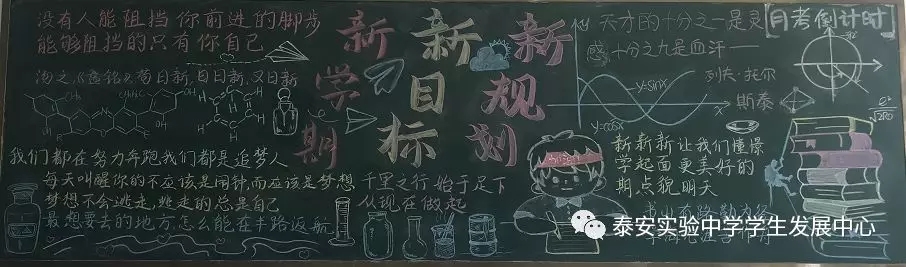 没有人能阻挡你前进的脚步
能够阻挡的只有你自己
汤之《盘铭》苟日新,日日新,又日新
CH₃
我们都在努力奔跑我们都是追梦人
每天叫醒你的不应该是闹钟,而应该是梦想
梦想不会逃走,逃走的总是自己
最想要去的地方,怎么能在半路返航
新 新 新
学 目 规
期 标 划
千里之行 始于足下
从现在做起
天才的十分之一是灵
感,十分之九是血汗——
列夫·托尔
斯泰
y=sinx
y=cosx
月考倒计时
新新新让我们憧憬
学起面更美好的
期点貌明天
书山有路勤为径
泰安实验中学学生发展中心